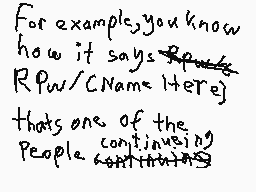 For example, you know
how it says
RPw/[Name Here]
thats one of the
People continueing